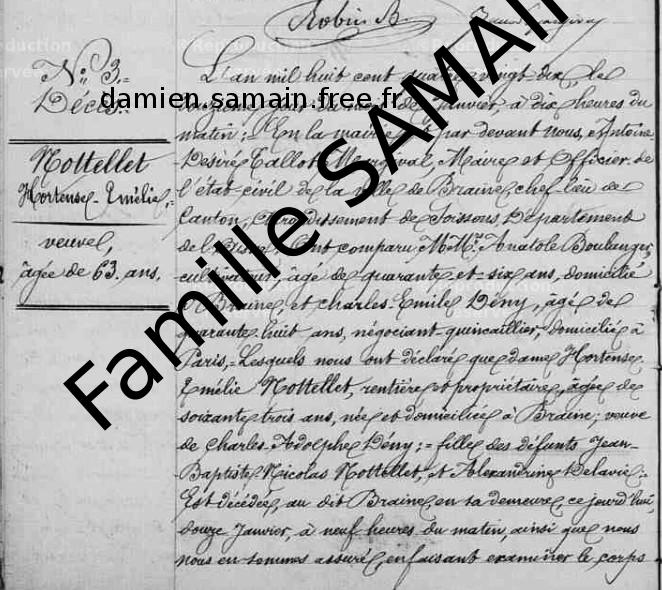 Robin B.
N° 3.
Décès.
Nottellet
Hortense-Emélie,
veuve,
âgée de 63. ans.
L'an mil huit cent quatre vingt dix, le
douzième jour du mois de Janvier, à dix heures du
matin; En la mairie et par devant nous, Antoine
Désiré Tallot Margival, Maire et Officier de
l'état civil de la ville de Braine chef lieu de
Canton, Arrondissement de Soissons Département
de l'Aisne, Ont comparu M.Mrs. Anatole Boulanger,
cultivateur, âgé de quarante et six ans, domicilié
à Braine, et Charles-Emile Dény, âgé de
quarante huit ans, négociant quincaillier, domicilié à
Paris, = Lesquels nous ont déclaré que dame Hortense-
Emélie Nottellet, rentière et propriétaire, âgée de
soixante trois ans, née et domiciliée à Braine; veuve
de Charles-Adolphe Dény; = fille des défunts Jean-
Baptiste Nicolas Nottellet, et Alexandrine Delavie;
Est décédée, au dit Braine, en sa demeure, ce jourd'hui,
douze Janvier, à neuf heures du matin, ainsi que nous
nous en sommes assuré, en faisant examiner le corps
damien.samain.free.fr
Famille SAMAIN